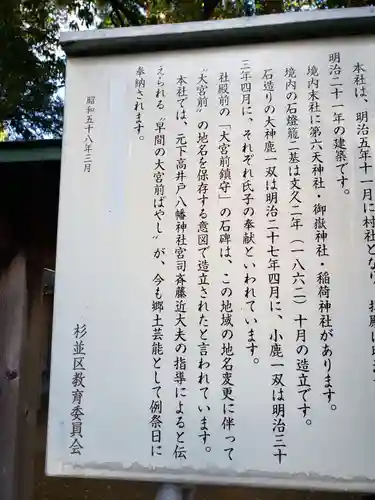 本社は、明治五年十一月に村社となり、拝殿は明治
明治二十一年の建築です。
境内末社に第六天神社・御嶽神社・稲荷神社があります。
境内の石燈籠二基は文久二年（一八六二）十月の造立です。
石造りの大神鹿一双は明治二十七年四月に、小鹿一双は明治三十
三年四月に、それぞれ氏子の奉献といわれています。
社殿前の「大宮前鎮守」の石碑は、この地域の地名変更に伴って
〝大宮前〟の地名を保存する意図で造立されたと言われています。
本社では、元下高井戸八幡神社宮司斉藤近大夫の指導によると伝
えられる〝早間の大宮前ばやし〟が、今も郷土芸能として例祭日に
奉納されます。
昭和五十八年三月
杉並区教育委員会